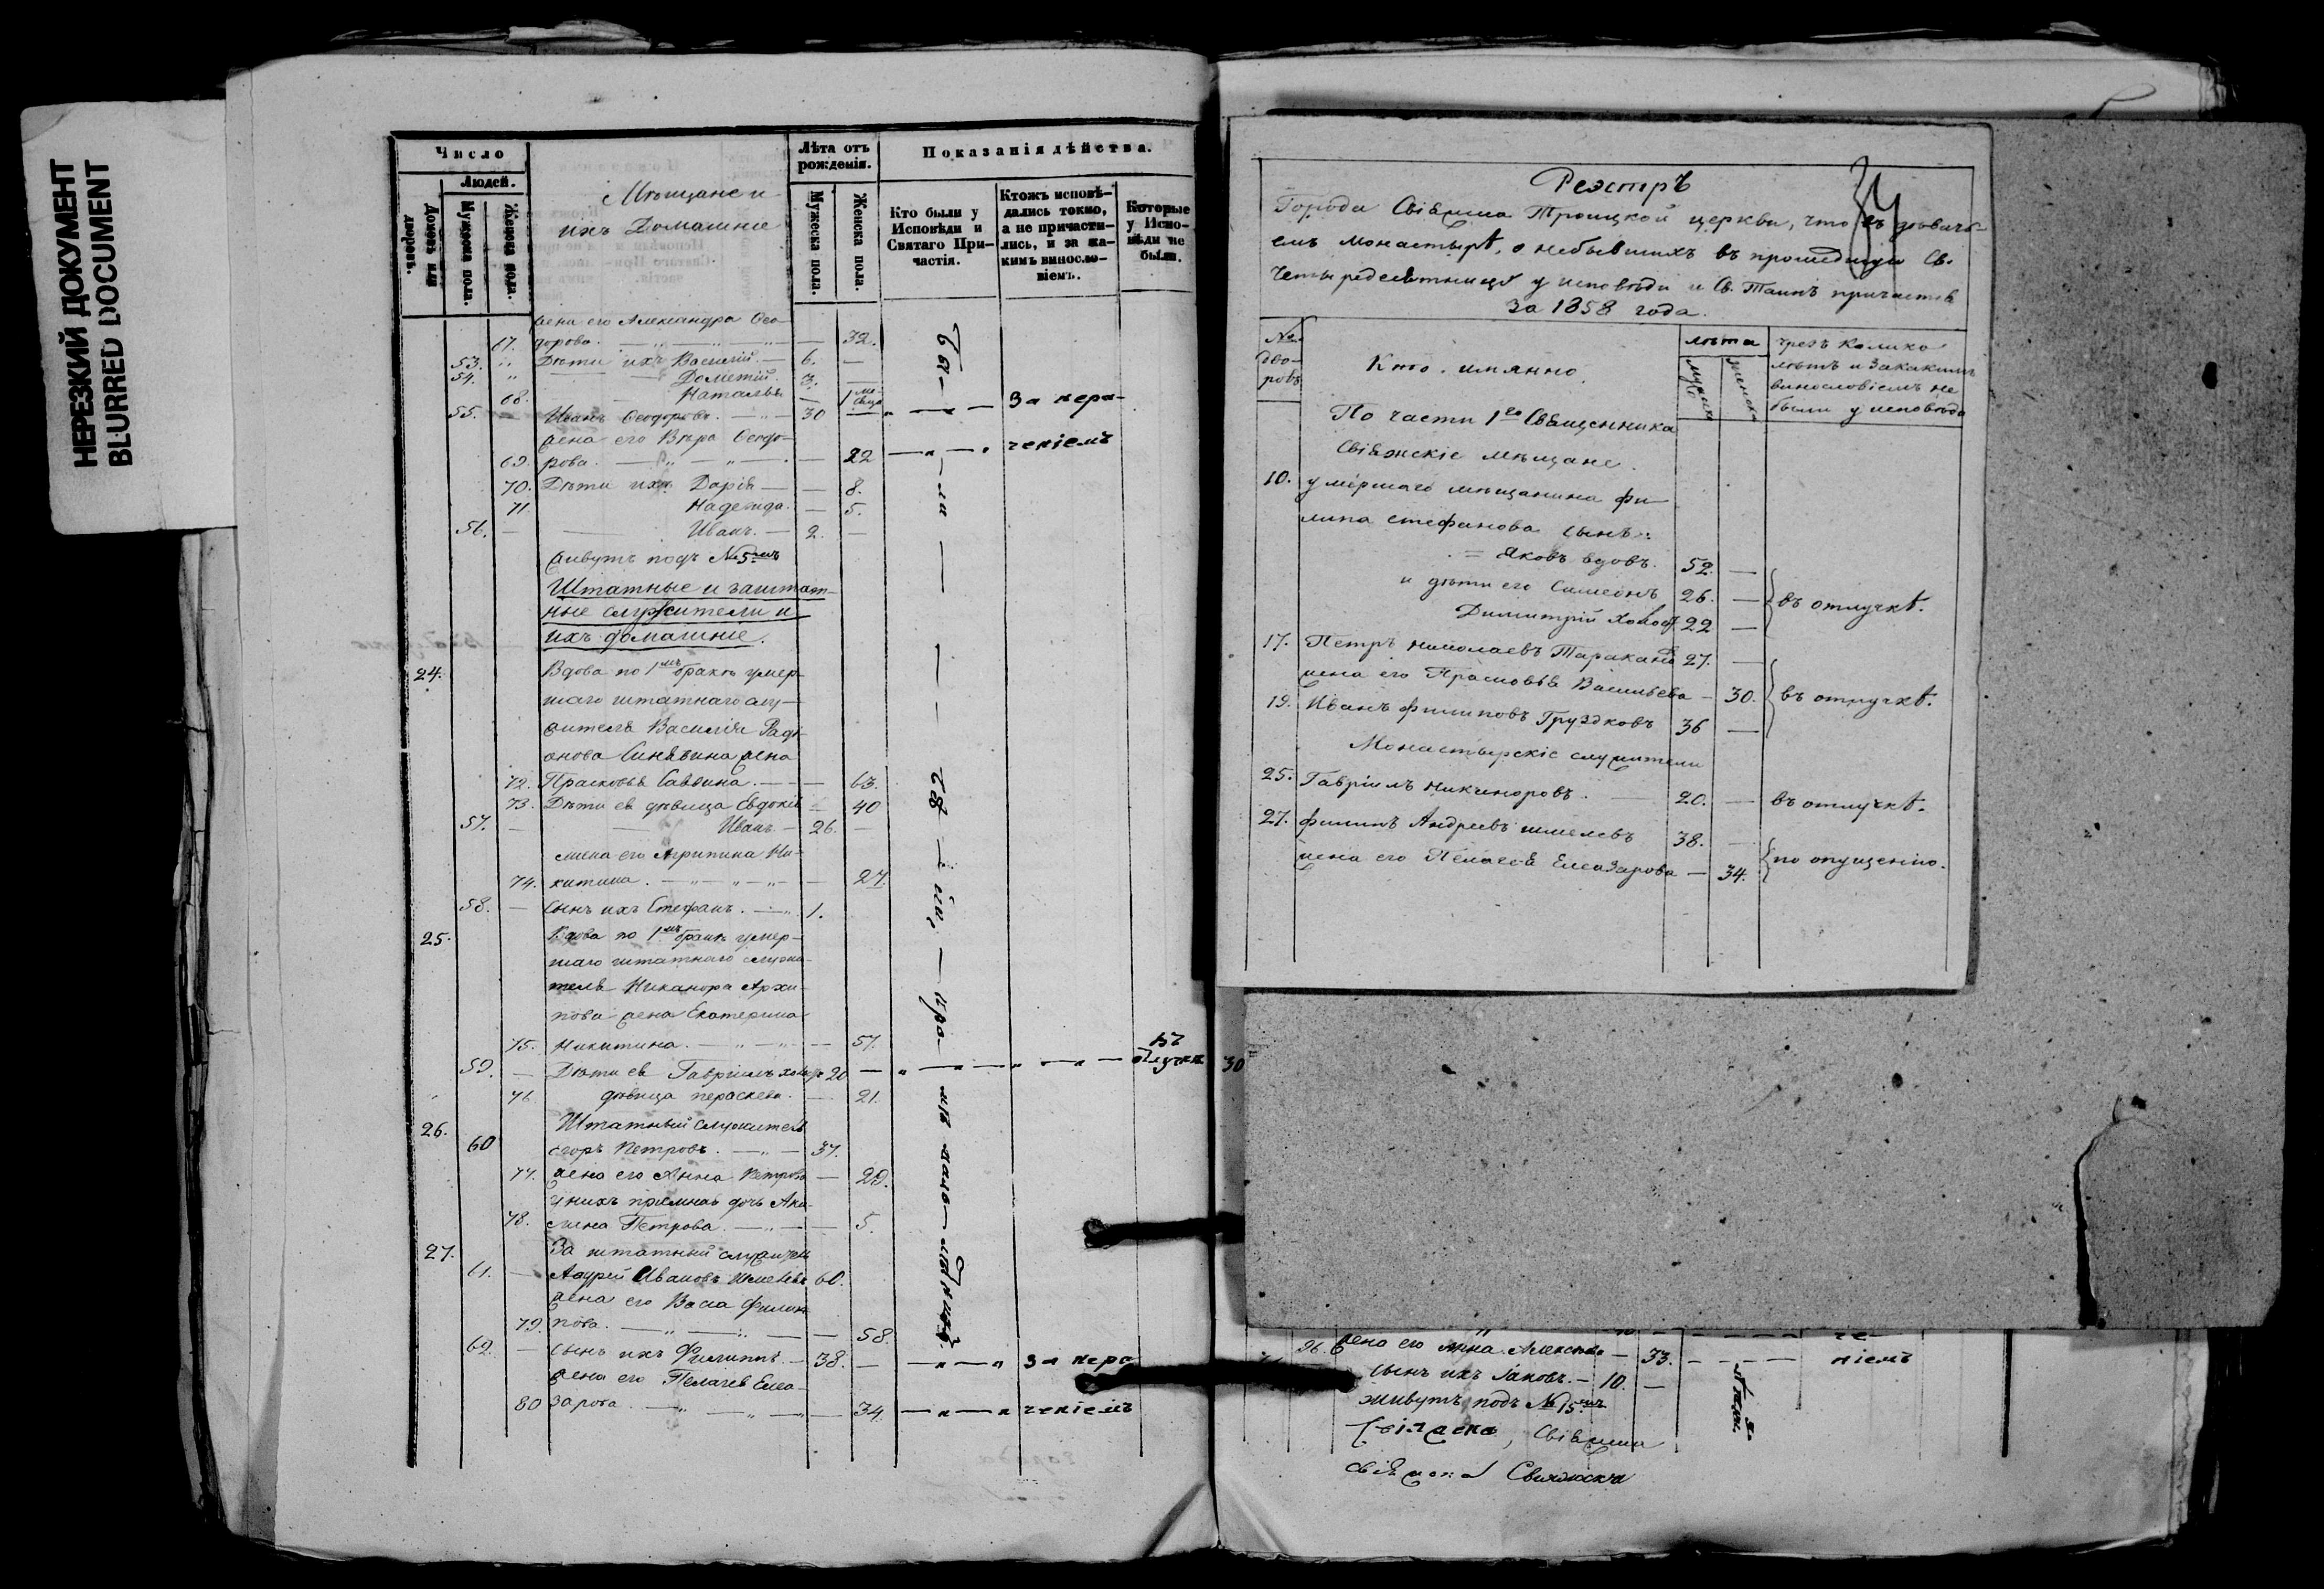 НЕРЕЗКИЙ ДОКУМЕНТ
BLURRED DOCUMENT
Число
Людей.
Домовъ или дворовъ.
Мужеска пола.
Женска пола.
Мѣщане и
ихъ Домашніе
Лѣта отъ рожденія.
Мужеска пола.
Женска пола.
Показанія дѣйства.
Кто были у Исповѣди и Святаго При-
частія.
Ктожъ исповѣ-
дались токмо, а не причасти-
лись, и за ка-
кимъ винослo-
віемъ.
Которые у Испо-
вѣди не были.
жена его Александра Ѳео-
67. дорова. — 32.
53. Дѣти ихъ Василій. — 6. —
54. " Дометій. 3. —
68. Наталья — 1 мѣсяца
55. — Иванъ Ѳеодоровъ. — 30 — За нера-
жена его Вѣра Ѳеодо-
69. рова. — 22 — чениемъ
70. Дѣти ихъ Дарія — — 8.
71. Надежда. — 5.
56. — Иванъ. — 2. —
живутъ подъ № 5мъ
Штатные и заштат-
ные служители и
ихъ домашніе.
24. Вдова по 1мъ бракѣ умер-
шаго штатнаго слу-
жителя Василія Роді-
онова Синявина жена
72. Прасковья Саввина. — — 63.
73. Дѣти ея дѣвица Евдокія — 40
57. — Иванъ — 26. —
жена его Агрипина Ни-
74. китина. — 27.
58. — Сынъ ихъ Стефанъ. — 1.
25. Вдова по 1мъ бракѣ умер-
шаго штатнаго служи-
теля Никанора Архи-
пова жена Екатерина
75. Никитина. — 57.
59. — Дѣти ея Гавріилъ холос 20 — въ отлучкѣ
76 дѣвица Параскева. — 21.
26. Штатный служитель
60 Егоръ Петровъ. — 37.
77. жена его Анна Петрова — 29.
у нихъ пріемная дочь Аку-
78. лина Петрова. — 5.
27. Заштатный служитель
61. — Андрей Ивановъ Шмелевъ 60.
жена его Васса Филип-
79. пова. — 58.
62. — Сынъ ихъ Филиппъ. — 38. — за нера
жена его Пелагея Елеа-
80 зарова. — 34. — ченіемъ
Реэстръ
Города Свіяжска Троицкой церкви, что въ дѣвичь-
емъ монастырѣ, о небывшихъ въ прошедшую Св.
Четыредесятницу у исповѣди и Св. Таинъ причастія
за 1858 года.
№ дво-
ровъ
Кто. имянно.
лѣта
мужска
женска
чрезъ колико
лѣтъ и за какимъ
винословіемъ не
были у исповѣди
По части 1го Священника
Свіяжскіе мѣщане.
10. умершаго мѣщанина Фи-
липа Стефанова сынъ:
Яковъ вдовъ. 52. —
и дѣти его Симеонъ 26. — въ отлучкѣ.
Димитрій холост. 22 —
17. Петръ Николаевъ Таракановъ 27. —
жена его Прасковья Васильева — 30. въ отлучкѣ.
19. Иванъ Филиповъ Груздковъ 36 —
Монастырскіе служители
25. Гавріилъ Никаноровъ. 20. — въ отлучкѣ.
27. Филипъ Андреевъ Шмелевъ 38. —
жена его Пелагея Елеазарова — 34. по опущенію.
30
96. жена его Анна Алексѣева — 33. ніемъ
Сынъ ихъ Іаковъ. — 10. —
живутъ подъ № 15мъ